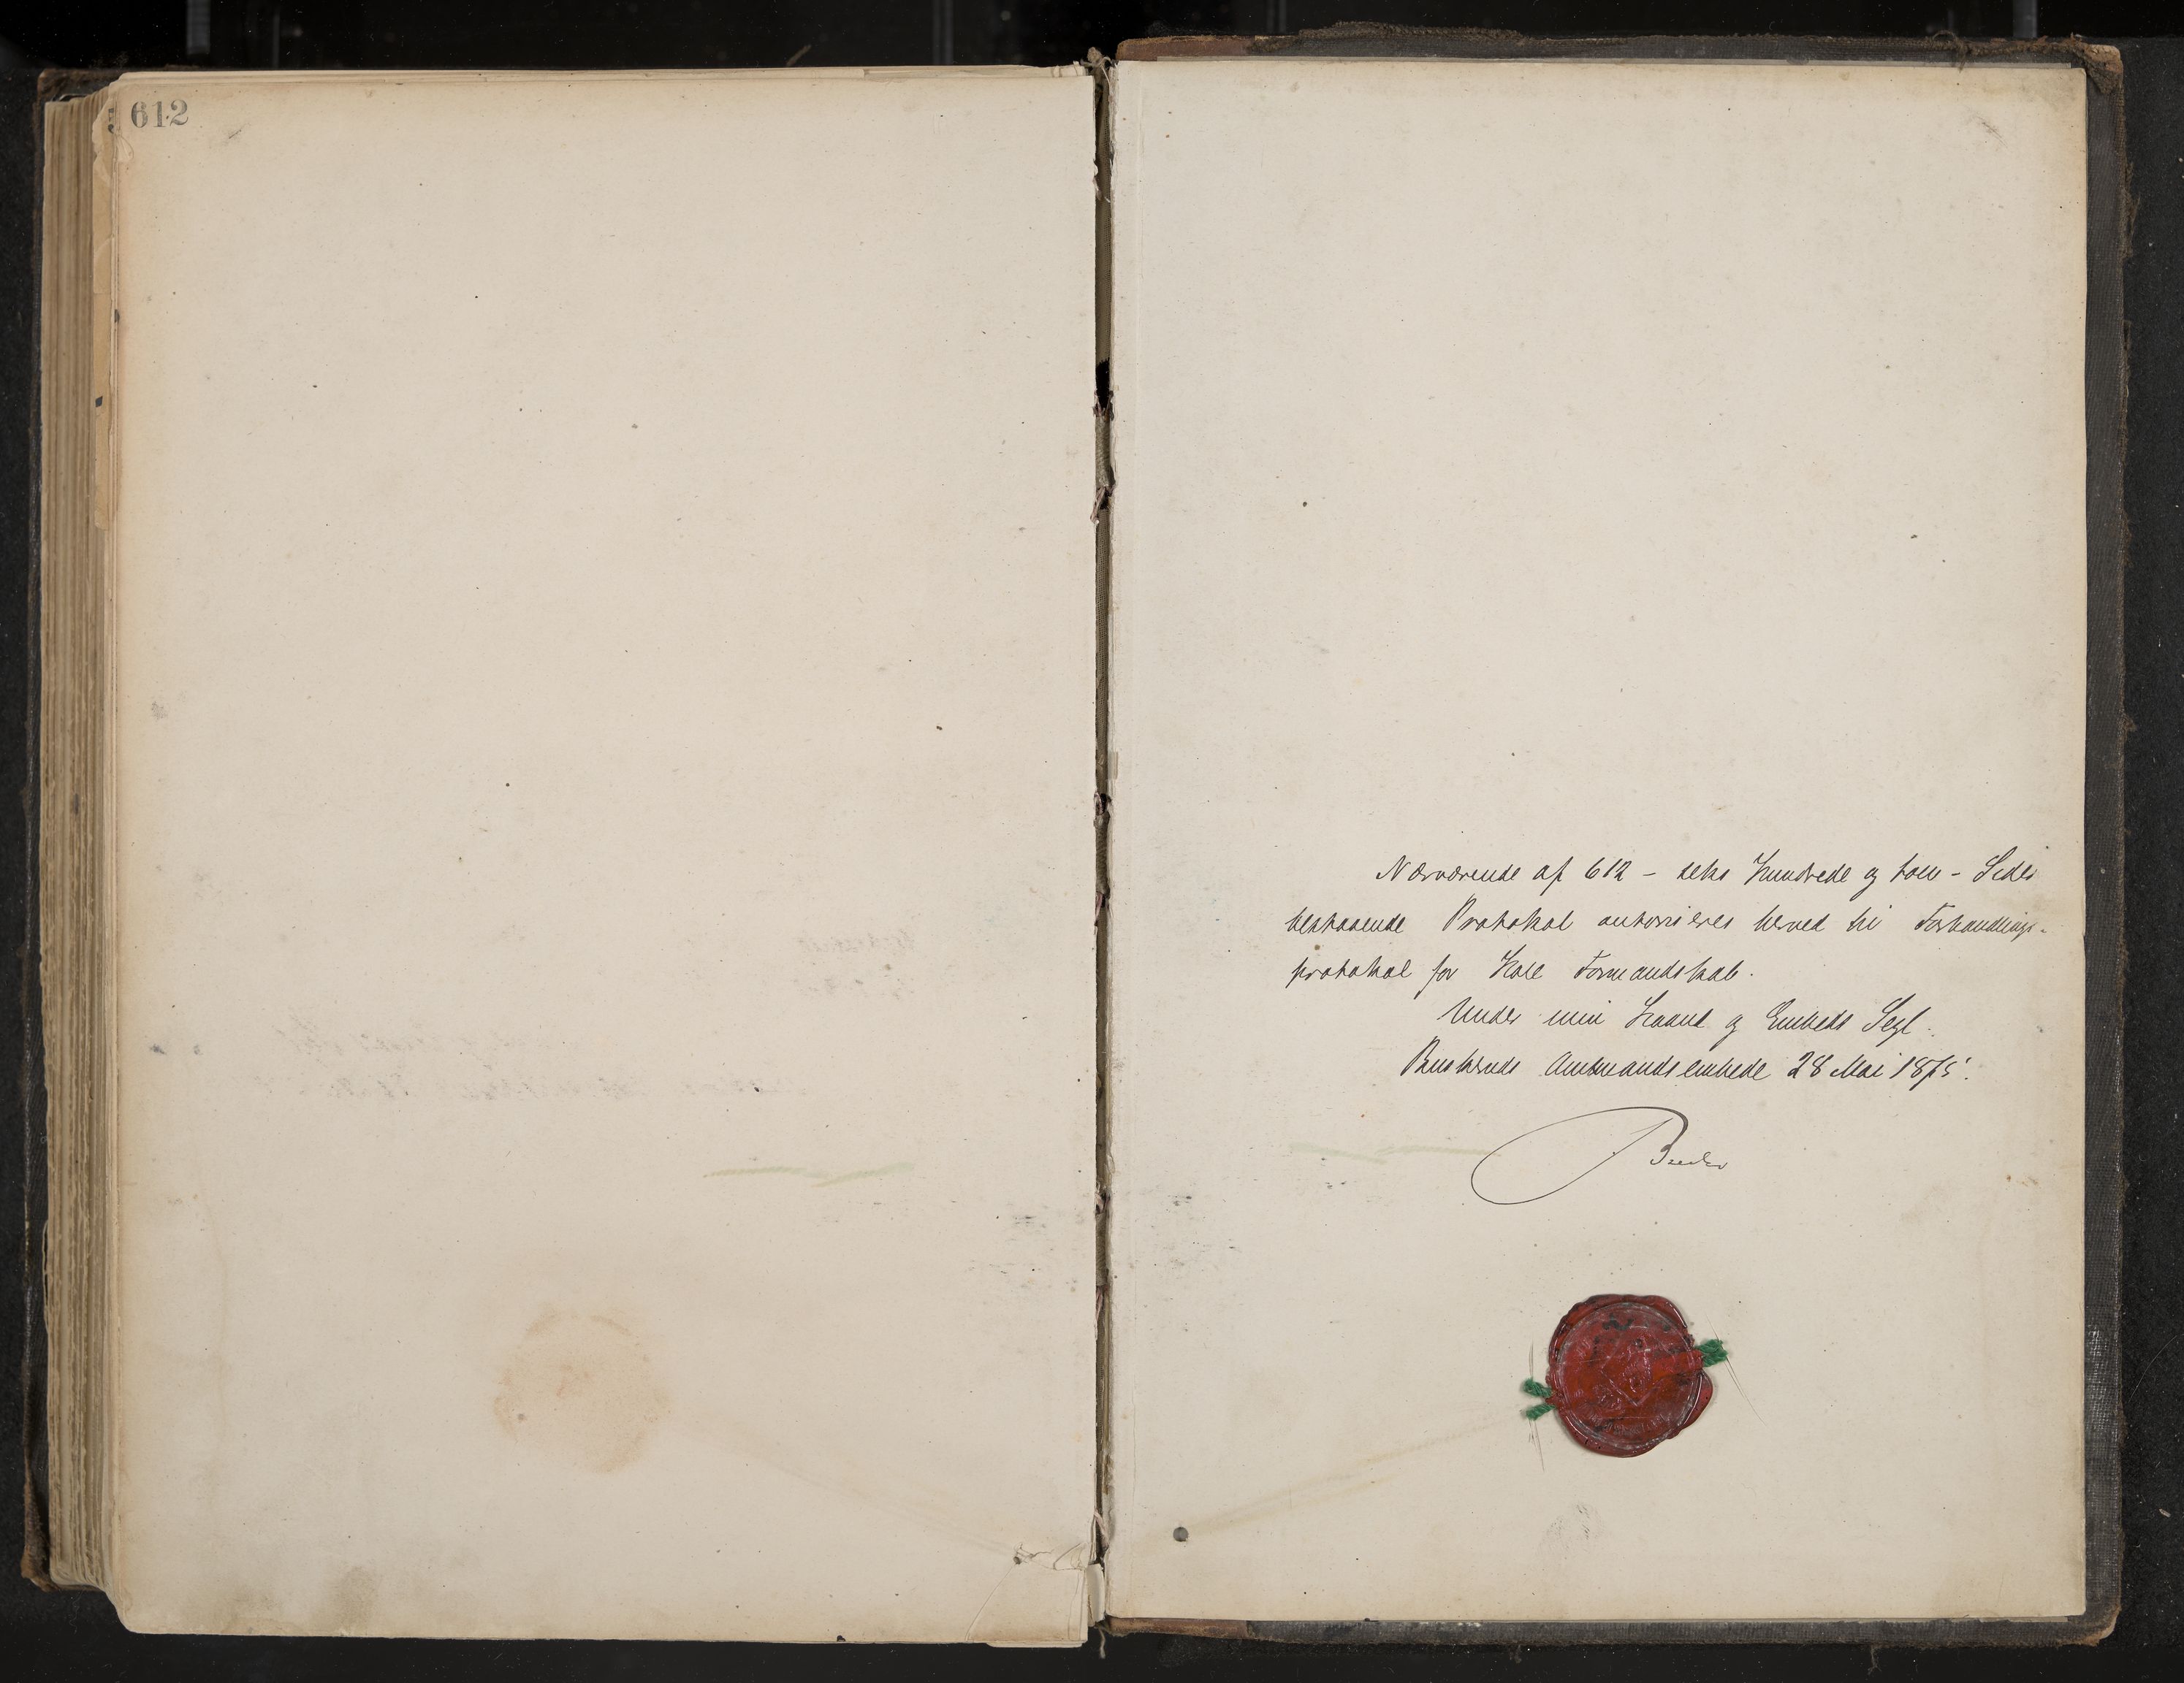 612
Nærværende af 612 - seks Hundrede og tolv - Sider
bestaaende Protokol autoriseres herved til Forhandlings-
protokol for Hole Formandskab.
Under min Haand og Embeds Segl.
Buskeruds Amtmandsembede 28 Mai 1875.